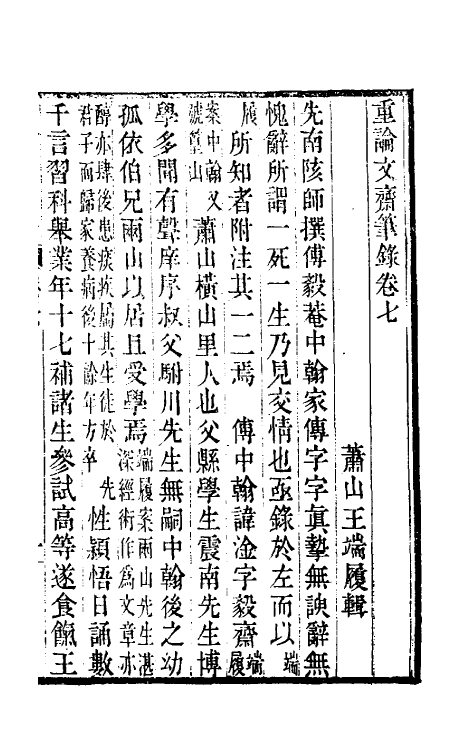 重論文齋筆錄卷七
蕭山王端履輯
先南陔師撰傅毅菴中翰家傳字字眞摯無諛辭無
愧辭所謂一死一生乃見交情也亟錄於左而以端
履所知者附注其一二焉　傅中翰諱淦字毅齋端履
案中翰又
號篁山蕭山橫山里人也父縣學生震南先生博
學多聞有聲庠序叔父駙川先生無嗣中翰後之幼
孤依伯兄雨山以居且受學焉端履案雨山先生湛
深經術作爲文章亦
醇亦肆後患痰疾屬其生徒於
君子而歸家養病後十餘年方卒先性穎悟日誦數
千言習科舉業年十七補諸生參試高等遂食餼王